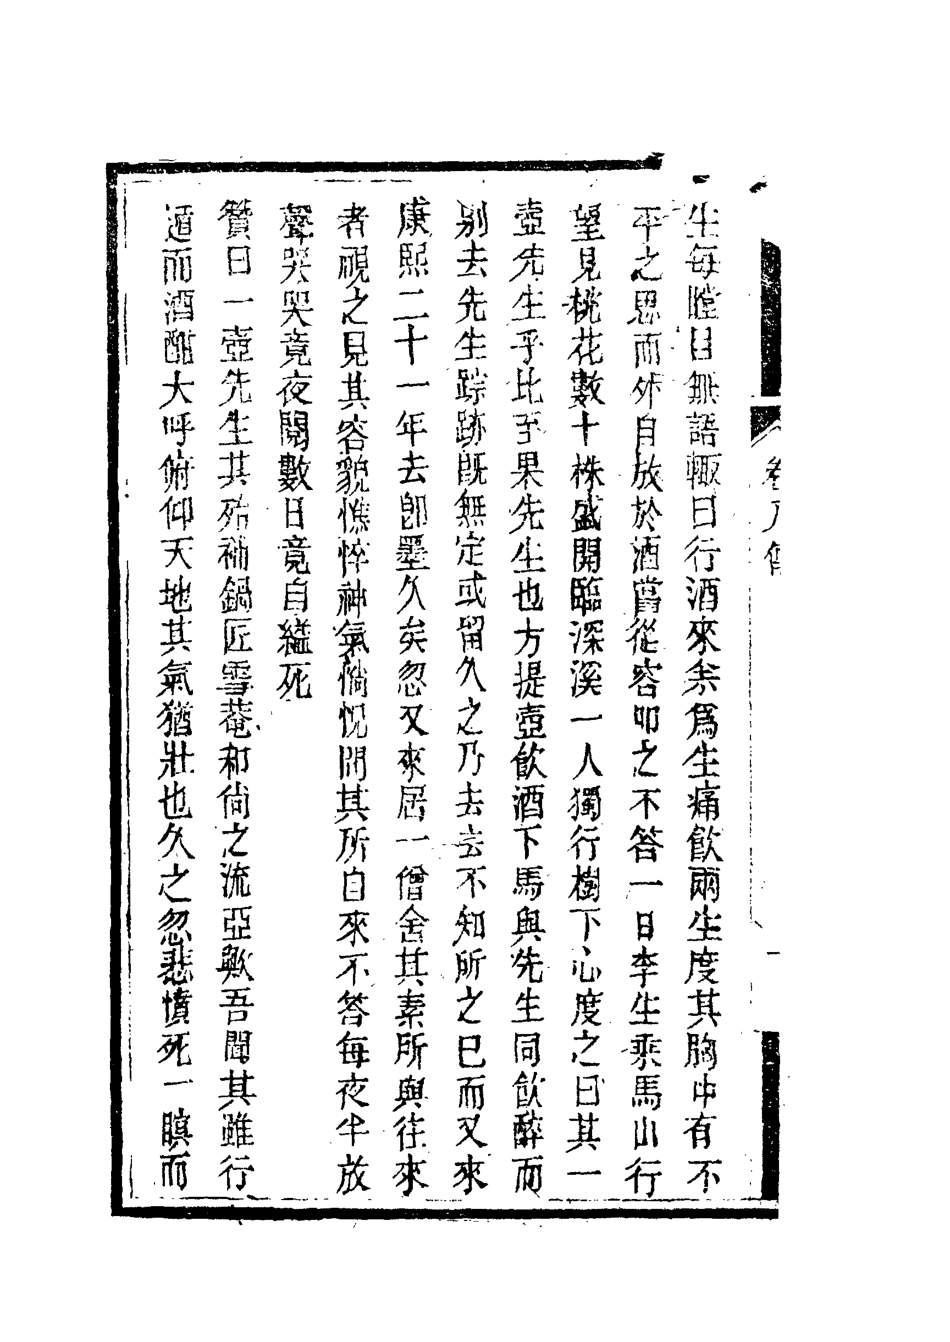 生每瞠目無語輙曰行酒來余爲生痛飲兩生度其胸中有不
平之思而外自放於酒嘗從容叩之不答一日李生乘馬山行
望見桃花數十株盛開臨深溪一人獨行樹下心度之曰其一
壺先生乎比至果先生也方提壺飲酒下馬與先生同飲醉而
别去先生踪跡旣無定或畱久之乃去去不知所之已而又來
康熙二十一年去卽墨久矣忽又來居一僧舍其素所與往來
者視之見其容貌憔悴神氣惝怳問其所自來不答每夜半放
聲哭哭竟夜閱數日竟自縊死
贊曰一壺先生其殆補鍋匠雪菴和尙之流亞歟吾聞其雖行
遁而酒酣大呼俯仰天地其氣猶壯也久之忽悲憤死一瞑而
卷八傳